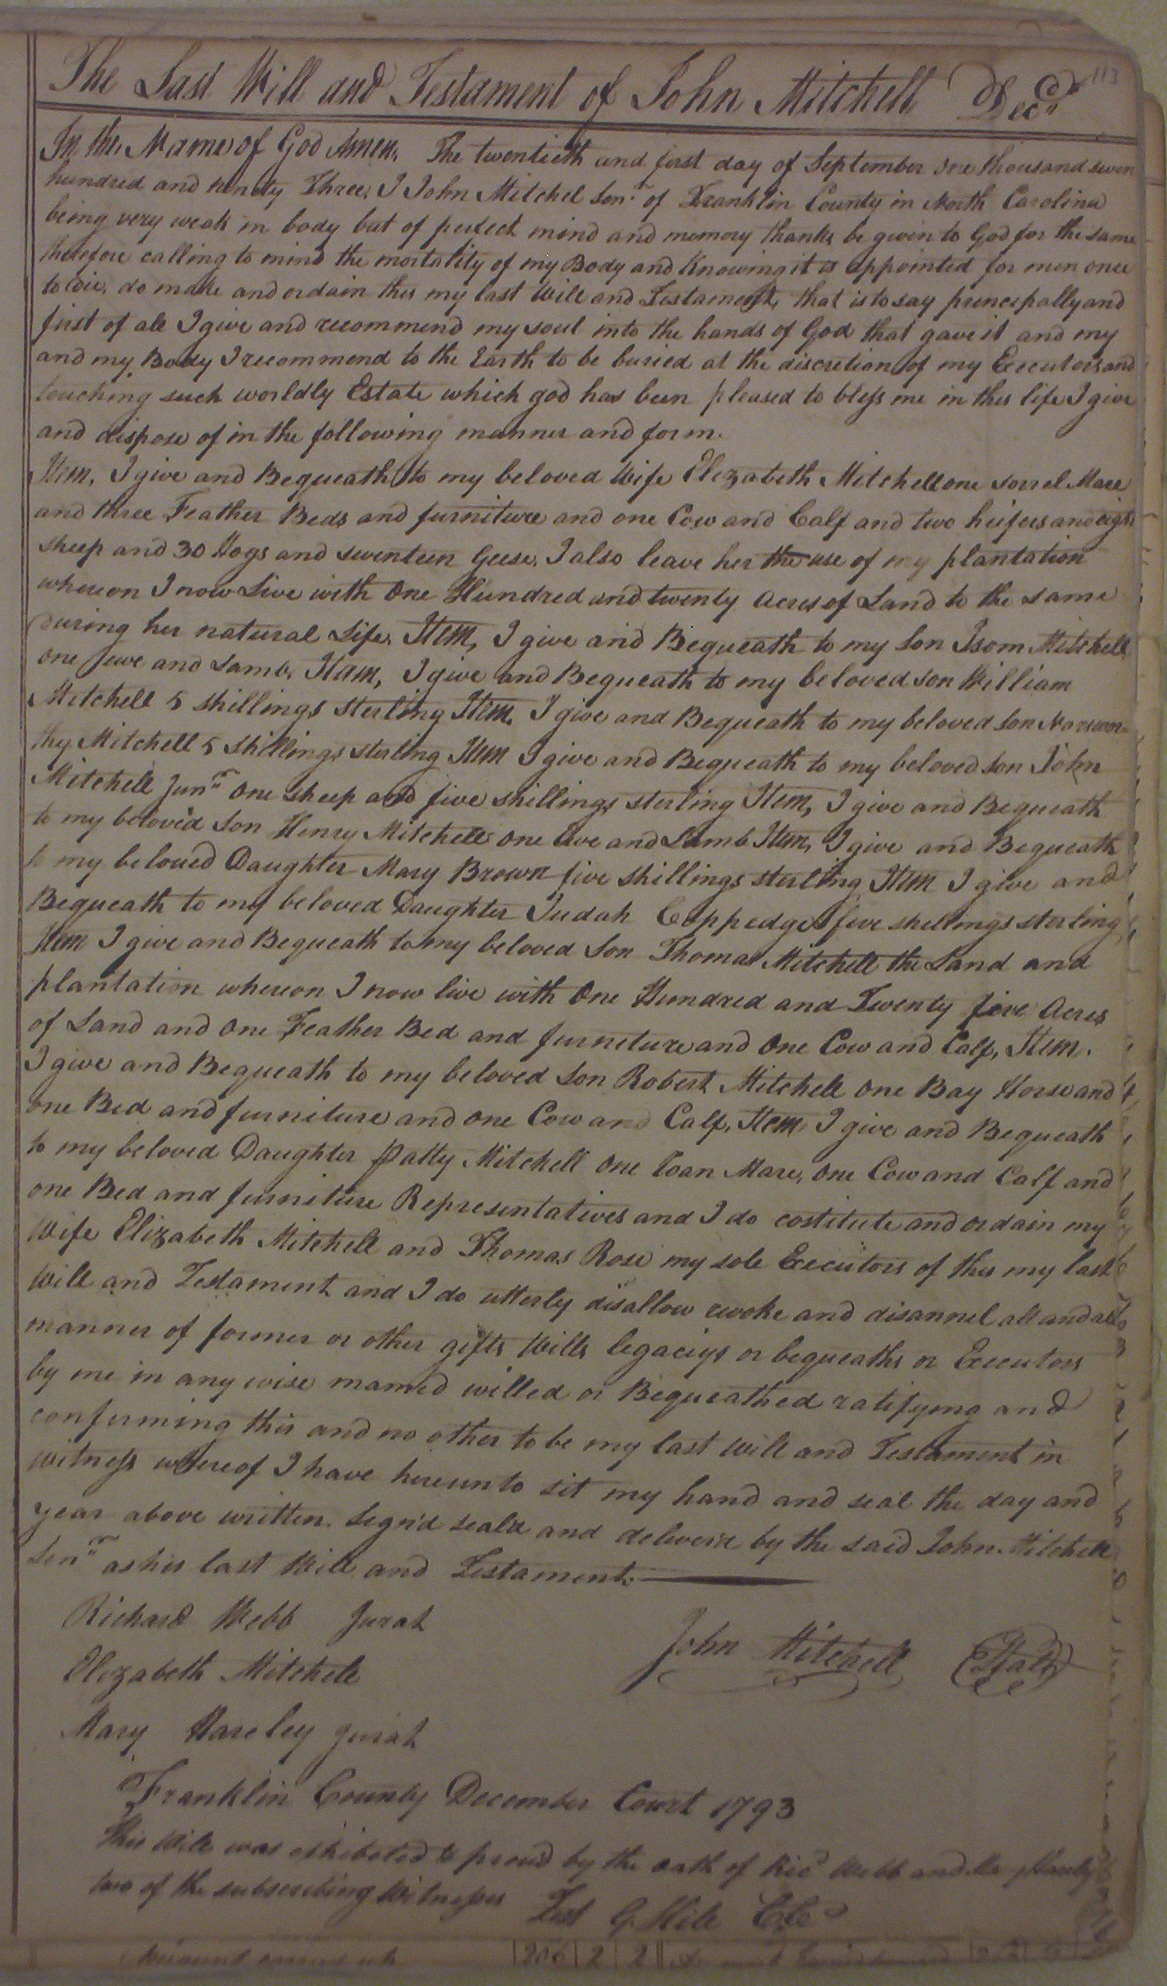 113
The Last Will and Testament of John Mitchell Decd
In the Name of God Amen. The twentieth and first day of September one thousand seven
hundred and ninety Three, I John Mitchel Senr. of Franklin County in North Carolina
being very weak in body but of perfect mind and memory thanks be given to God for the same
therefore calling to mind the mortality of my Body and Knowing it is appointed for men once
to die, do make and ordain this my last Will and Testament, that is to say principally and
first of all I give and recommend my soul into the hands of God that gave it and my
and my Body I recommend to the Earth to be buried at the discretion of my Executors and
touching such worldly Estate which god has been pleased to bless me in this life I give
and dispose of in the following manner and form.
Item, I give and Bequeath to my beloved Wife Elizabeth Mitchell one sorrel Mare
and three Feather Beds and furniture and one Cow and Calf and two heifers and eight
sheep and 30 Hogs and seventeen Geese, I also leave her the use of my plantation
whereon I now Live with One Hundred and twenty Acres of Land to the same
during her natural Life. Item, I give and Bequeath to my Son Isom Mitchell
one Ewe and Lamb, Item, I give and Bequeath to my beloved son William
Mitchell 5 shillings sterling Item, I give and Bequeath to my beloved son Norswor-
thy Mitchell 5 shillings sterling Item I give and Bequeath to my beloved Son John
Mitchell Junr One sheep and five shillings sterling Item, I give and Bequeath
to my beloved Son Henry Mitchell one Ewe and Lamb Item, I give and Bequeath
to my beloved Daughter Mary Brown five shillings sterling Item I give and
Bequeath to my beloved Daughter Judah Coppedge five shillings sterling
Item I give and Bequeath to my beloved Son Thomas Mitchell the Land and
plantation whereon I now live with One Hundred and Twenty five Acres
of Land and One Feather Bed and furniture and One Cow and Calf, Item.
I give and Bequeath to my beloved Son Robert Mitchell One Bay Horse and
one Bed and furniture and one Cow and Calf, Item, I give and Bequeath
to my beloved Daughter Patty Mitchell One roan Mare, one Cow and Calf and
one Bed and furniture Representatives and I do costitute and ordain my
Wife Elizabeth Mitchell and Thomas Rose my sole Executors of this my last
Will and Testament and I do utterly disallow revoke and disannel all and all
manner of former or other gifts Wills legaciys or bequeaths or Executors
by me in any wise mamed willed or Bequeathed ratifying and
confirming this and no other to be my last Will and Testament in
witness whereof I have hereunto sit my hand and seal the day and
year above written. Sign'd seal'd and deliver'd by the said John Mitchell
Senr as his last Will and Testament.
Richard Webb Jurat
John Mitchell (Seal)
Elizabeth Mitchell
Mary Harcley Jurat
Franklin County December Court 1793
This Will was exhibeted & proved by the oath of Ricd Webb and
two of the subscribing Witnesses Test G. Hill C.C.
206 2 2